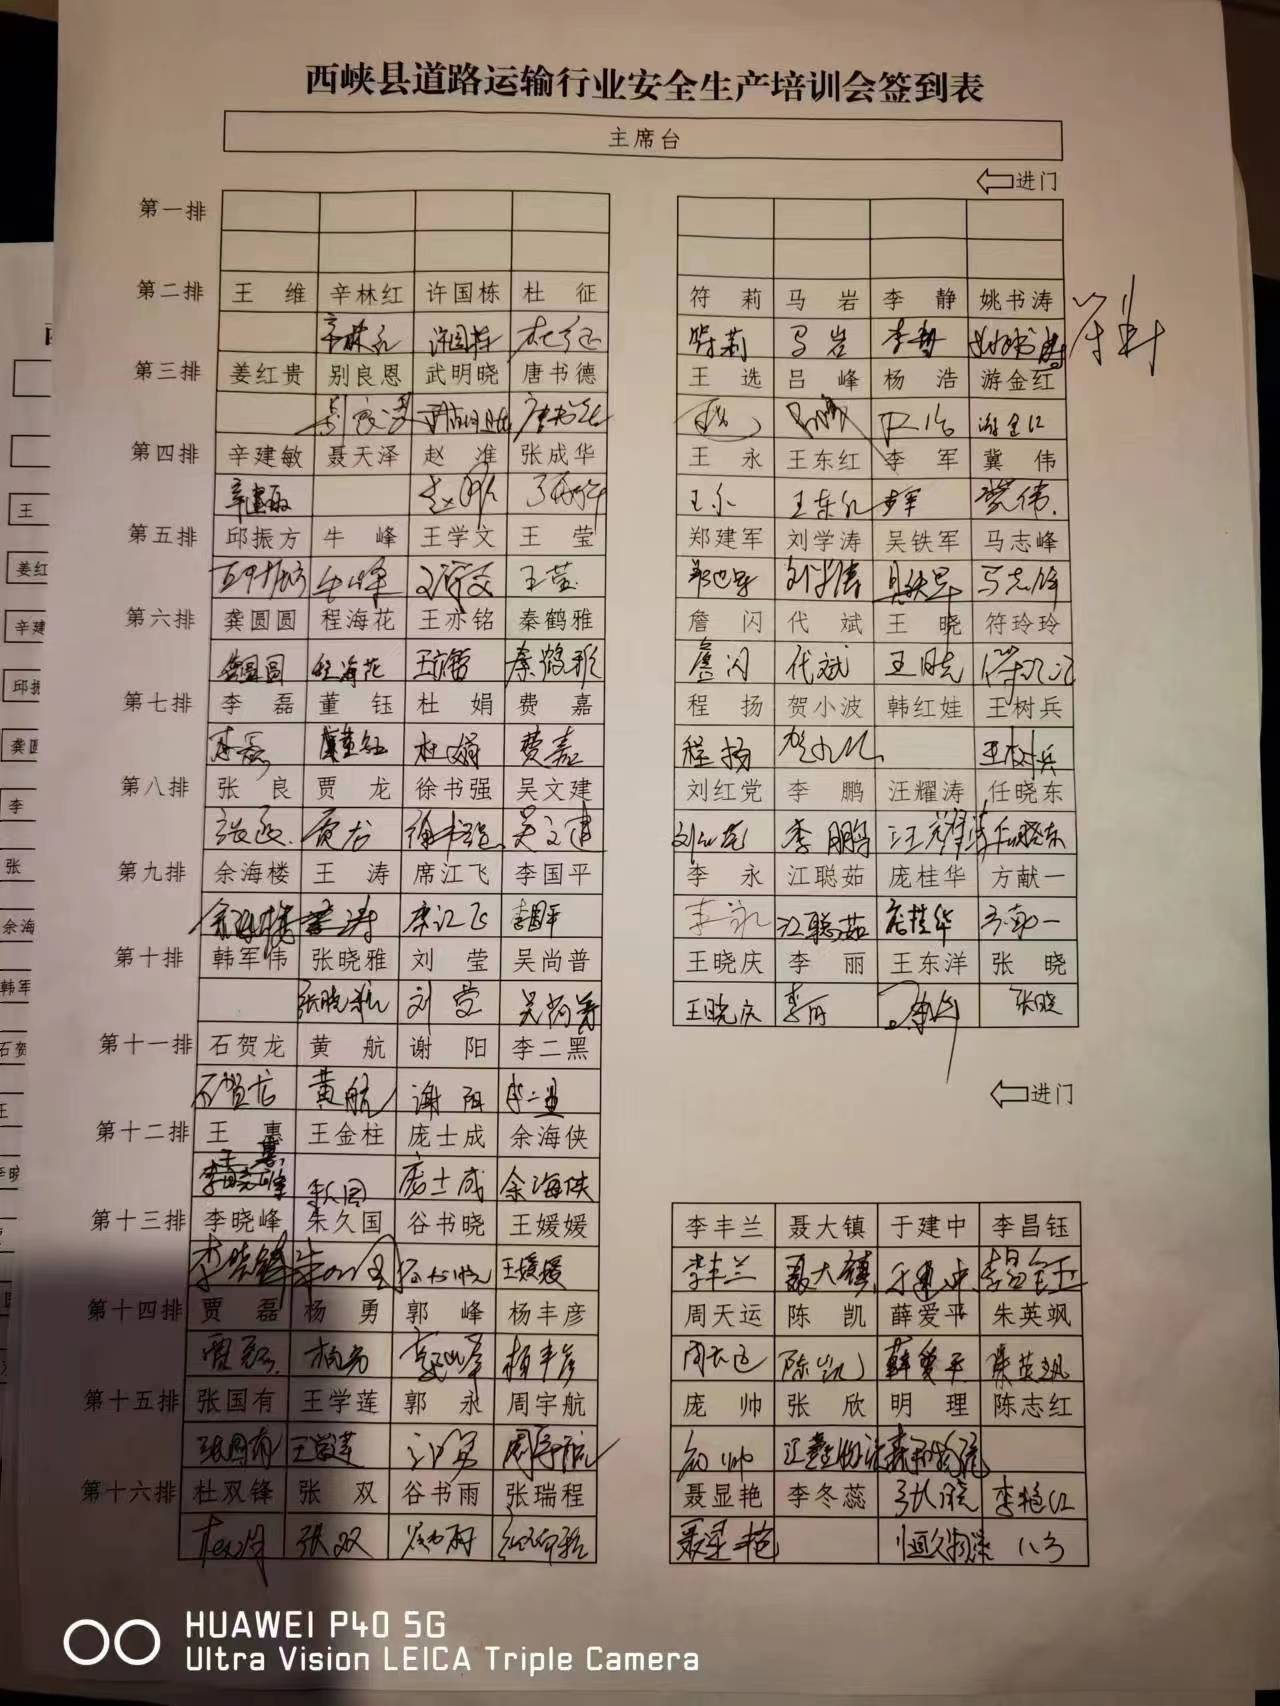 西峡县道路运输行业安全生产培训会签到表
主席台
进门
第一排
第二排 王维 辛林红 许国栋 杜征 符莉 马岩 李静 姚书涛
辛林红 许国栋 杜征 符莉 马岩 李静 姚书涛
第三排 姜红贵 别良恩 武明晓 唐书德 王选 吕峰 杨浩 游金红
别良恩 武明晓 唐书德 游金红
第四排 辛建敏 聂天泽 赵准 张成华 王永 王东红 李军 冀伟
辛建敏 赵准 张成华 王永 王东红 李军 冀伟
第五排 邱振方 牛峰 王学文 王莹 郑建军 刘学涛 吴铁军 马志峰
邱振方 牛峰 王学文 王莹 刘学涛 吴铁军 马志峰
第六排 龚圆圆 程海花 王亦铭 秦鹤雅 詹闪 代斌 王晓 符玲玲
龚圆圆 程海花 王亦铭 秦鹤雅 詹闪 代斌 王晓 符玲玲
第七排 李磊 董钰 杜娟 费嘉 程扬 贺小波 韩红娃 王树兵
李磊 董钰 杜娟 费嘉 程扬 贺小波 王树兵
第八排 张良 贾龙 徐书强 吴文建 刘红党 李鹏 汪耀涛 任晓东
张良 贾龙 徐书强 吴文建 刘红党 李鹏 汪耀涛 任晓东
第九排 余海楼 王涛 席江飞 李国平 李永 江聪茹 庞桂华 方献一
余海楼 王涛 席江飞 李国平 李永 江聪茹 庞桂华 方献一
第十排 韩军伟 张晓雅 刘莹 吴尚普 王晓庆 李丽 王东洋 张晓
张晓雅 刘莹 吴尚普 王晓庆 李丽 张晓
第十一排 石贺龙 黄航 谢阳 李二黑
石贺龙 黄航 谢阳 李二黑
进门
第十二排 王惠 王金柱 庞士成 余海侠
王惠
李晓峰 庞士成 余海侠
第十三排 李晓峰 朱久国 谷书晓 王媛媛 李丰兰 聂大镇 于建中 李昌钰
李晓峰 朱久国 谷书晓 王媛媛 李丰兰 聂大镇 于建中 李昌钰
第十四排 贾磊 杨勇 郭峰 杨丰彦 周天运 陈凯 薛爱平 朱英飒
贾磊 杨勇 郭峰 杨丰彦 周天运 陈凯 薛爱平 朱英飒
第十五排 张国有 王学莲 郭永 周宇航 庞帅 张欣 明理 陈志红
张国有 王学莲 周宇航 庞帅
第十六排 杜双锋 张双 谷书雨 张瑞程 聂显艳 李冬蕊 张晓 李艳红
杜双锋 张双 谷书雨 张瑞程 聂显艳 恒久物流
王
姜红
辛建
邱振
龚圆
李
张
余海
韩军
石贺
HUAWEI P40 5G
Ultra Vision LEICA Triple Camera